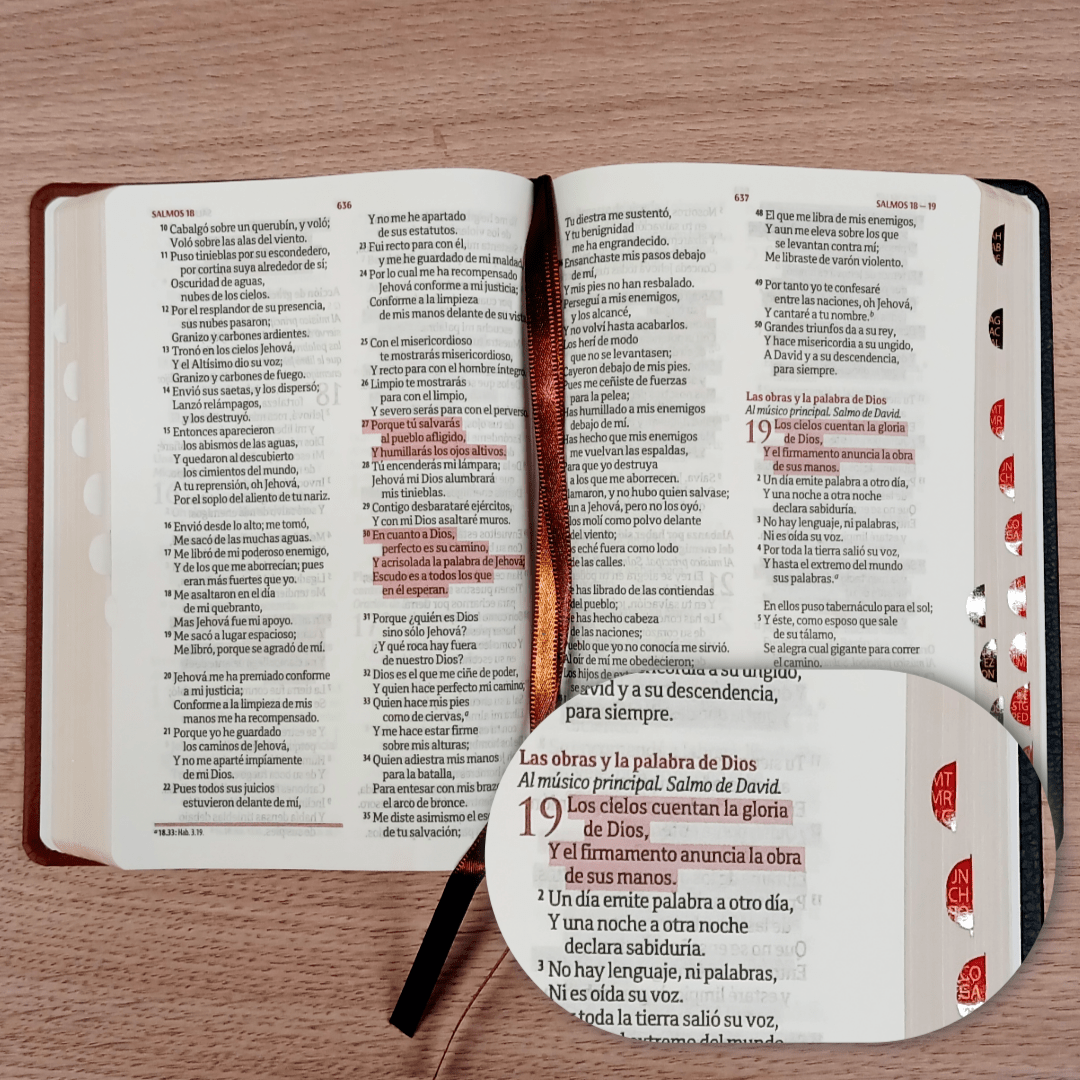 SALMOS 18
636
10 Cabalgó sobre un querubín, y voló;
Voló sobre las alas del viento.
11 Puso tinieblas por su escondedero,
por cortina suya alrededor de sí;
Oscuridad de aguas,
nubes de los cielos.
12 Por el resplandor de su presencia,
sus nubes pasaron;
Granizo y carbones ardientes.
13 Tronó en los cielos Jehová,
Y el Altísimo dio su voz;
Granizo y carbones de fuego.
14 Envió sus saetas, y los dispersó;
Lanzó relámpagos,
y los destruyó.
15 Entonces aparecieron
los abismos de las aguas,
Y quedaron al descubierto
los cimientos del mundo,
A tu reprensión, oh Jehová,
Por el soplo del aliento de tu nariz.
16 Envió desde lo alto; me tomó,
Me sacó de las muchas aguas.
17 Me libró de mi poderoso enemigo,
Y de los que me aborrecían; pues
eran más fuertes que yo.
18 Me asaltaron en el día
de mi quebranto,
Mas Jehová fue mi apoyo.
19 Me sacó a lugar espacioso;
Me libró, porque se agradó de mí.
20 Jehová me ha premiado conforme
a mi justicia;
Conforme a la limpieza de mis
manos me ha recompensado.
21 Porque yo he guardado
los caminos de Jehová,
Y no me aparté impíamente
de mi Dios.
22 Pues todos sus juicios
estuvieron delante de mí,
a 18.33: Hab. 3.19.
Y no me he apartado
de sus estatutos.
23 Fui recto para con él,
y me he guardado de mi maldad
24 Por lo cual me ha recompensado
Jehová conforme a mi justicia;
Conforme a la limpieza
de mis manos delante de su vista
25 Con el misericordioso
te mostrarás misericordioso,
Y recto para con el hombre íntegro
26 Limpio te mostrarás
para con el limpio,
Y severo serás para con el perverso
27 Porque tú salvarás
al pueblo afligido,
Y humillarás los ojos altivos.
28 Tú encenderás mi lámpara;
Jehová mi Dios alumbrará
mis tinieblas.
29 Contigo desbarataré ejércitos,
Y con mi Dios asaltaré muros.
30 En cuanto a Dios,
perfecto es su camino,
Y acrisolada la palabra de Jehová;
Escudo es a todos los que
en él esperan.
31 Porque ¿quién es Dios
sino sólo Jehová?
¿Y qué roca hay fuera
de nuestro Dios?
32 Dios es el que me ciñe de poder,
Y quien hace perfecto mi camino;
33 Quien hace mis pies
como de ciervas,a
Y me hace estar firme
sobre mis alturas;
34 Quien adiestra mis manos
para la batalla,
Para entesar con mis braz
el arco de bronce.
35 Me diste asimismo el es
de tu salvación;
637
SALMOS 18 — 19
Tu diestra me sustentó,
Y tu benignidad
me ha engrandecido.
Ensanchaste mis pasos debajo
de mí,
Y mis pies no han resbalado.
Perseguí a mis enemigos,
y los alcancé,
Y no volví hasta acabarlos.
Los herí de modo
que no se levantasen;
Cayeron debajo de mis pies.
Pues me ceñiste de fuerzas
para la pelea;
Has humillado a mis enemigos
debajo de mí.
Has hecho que mis enemigos
me vuelvan las espaldas,
ara que yo destruya
a los que me aborrecen.
lamaron, y no hubo quien salvase;
un a Jehová, pero no los oyó.
los molí como polvo delante
del viento;
os eché fuera como lodo
de las calles.
e has librado de las contiendas
del pueblo;
e has hecho cabeza
de las naciones;
ueblo que yo no conocía me sirvió.
Al oír de mí me obedecieron;
Los hijos de ext
se
48 El que me libra de mis enemigos,
Y aun me eleva sobre los que
se levantan contra mí;
Me libraste de varón violento.
49 Por tanto yo te confesaré
entre las naciones, oh Jehová,
Y cantaré a tu nombre.b
50 Grandes triunfos da a su rey,
Y hace misericordia a su ungido,
A David y a su descendencia,
para siempre.
Las obras y la palabra de Dios
Al músico principal. Salmo de David.
19 Los cielos cuentan la gloria
de Dios,
Y el firmamento anuncia la obra
de sus manos.
2 Un día emite palabra a otro día,
Y una noche a otra noche
declara sabiduría.
3 No hay lenguaje, ni palabras,
Ni es oída su voz.
4 Por toda la tierra salió su voz,
Y hasta el extremo del mundo
sus palabras.a
En ellos puso tabernáculo para el sol;
5 Y éste, como esposo que sale
de su tálamo,
Se alegra cual gigante para correr
el camino.
MT
MR
JN
CH
CO
ordia a su ungido,
vid y a su descendencia,
para siempre.
Las obras y la palabra de Dios
Al músico principal. Salmo de David.
19 Los cielos cuentan la gloria
de Dios,
Y el firmamento anuncia la obra
de sus manos.
2 Un día emite palabra a otro día,
Y una noche a otra noche
declara sabiduría.
3 No hay lenguaje, ni palabras,
Ni es oída su voz.
toda la tierra salió su voz,
extremo del mundo
MT
MR
JN
CH
CO